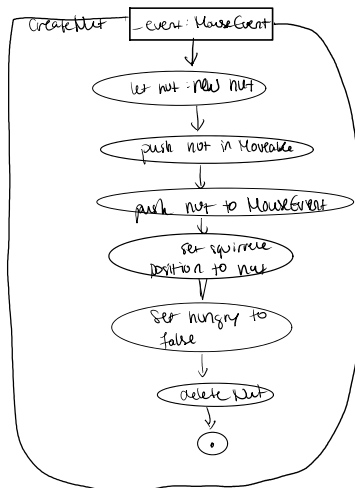 createNut
_event: MouseEvent
let nut : new nut
push nut in Moveable
push nut to MouseEvent
set squirrele
position to nut
Set hungry to
False
delete Nut